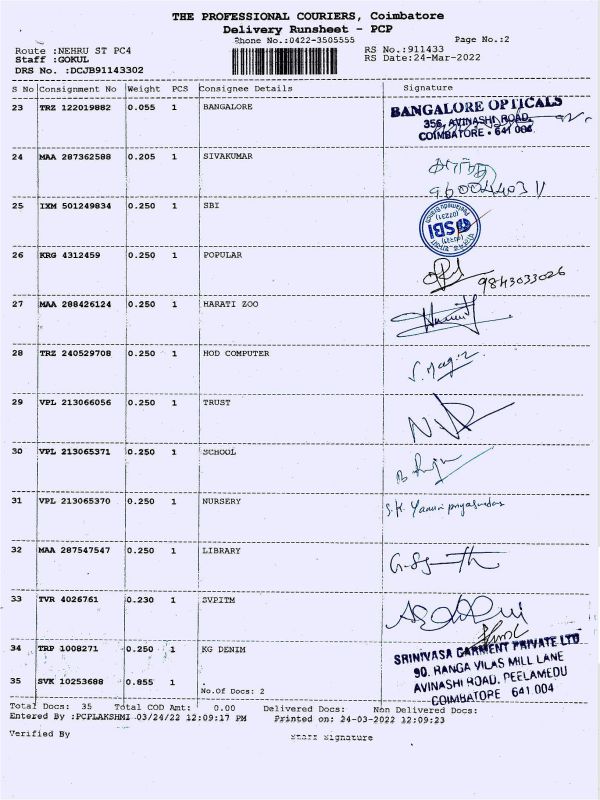 THE PROFESSIONAL COURIERS, Coimbatore
Delivery Runsheet - PCP
Phone No.:0422-3505555 Page No.:2
Route :NEHRU ST PC4 RS No.:911433
Staff :GOKUL RS Date:24-Mar-2022
DRS No. :DCJB91143302
S No Consignment No Weight PCS Consignee Details Signature
23 TRZ 122019882 0.055 1 BANGALORE
BANGALORE OPTICALS
356, AVINASHI ROAD,
COIMBATORE - 641 006
24 MAA 287362588 0.205 1 SIVAKUMAR
25 IXM 501249834 0.250 1 SBI
SBI
26 KRG 4312459 0.250 1 POPULAR
9843033026
27 MAA 288426124 0.250 1 HARATI ZOO
28 TRZ 240529708 0.250 1 HOD COMPUTER
29 VPL 213066056 0.250 1 TRUST
30 VPL 213065371 0.250 1 SCHOOL
31 VPL 213065370 0.250 1 NURSERY
32 MAA 287547547 0.250 1 LIBRARY
33 TVR 4026761 0.230 1 SVPITM
34 TRP 1008271 0.250 1 KG DENIM
SRINIVASA GARMENT PRIVATE LTD
90. RANGA VILAS MILL LANE
35 SVK 10253688 0.855 1
AVINASHI ROAD, PEELAMEDU
COIMBATORE 641 004
No.Of Docs: 2
Total Docs: 35 Total COD Amt: 0.00 Delivered Docs: Non Delivered Docs:
Entered By :PCPLAKSHMI 03/24/22 12:09:17 PM Printed on: 24-03-2022 12:09:23
Verified By Staff Signature